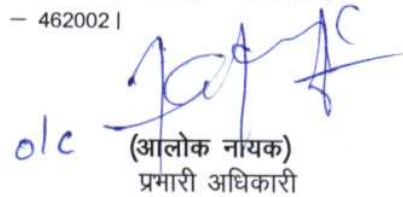 – 462002।
o/c
(आलोक नायक)
प्रभारी अधिकारी